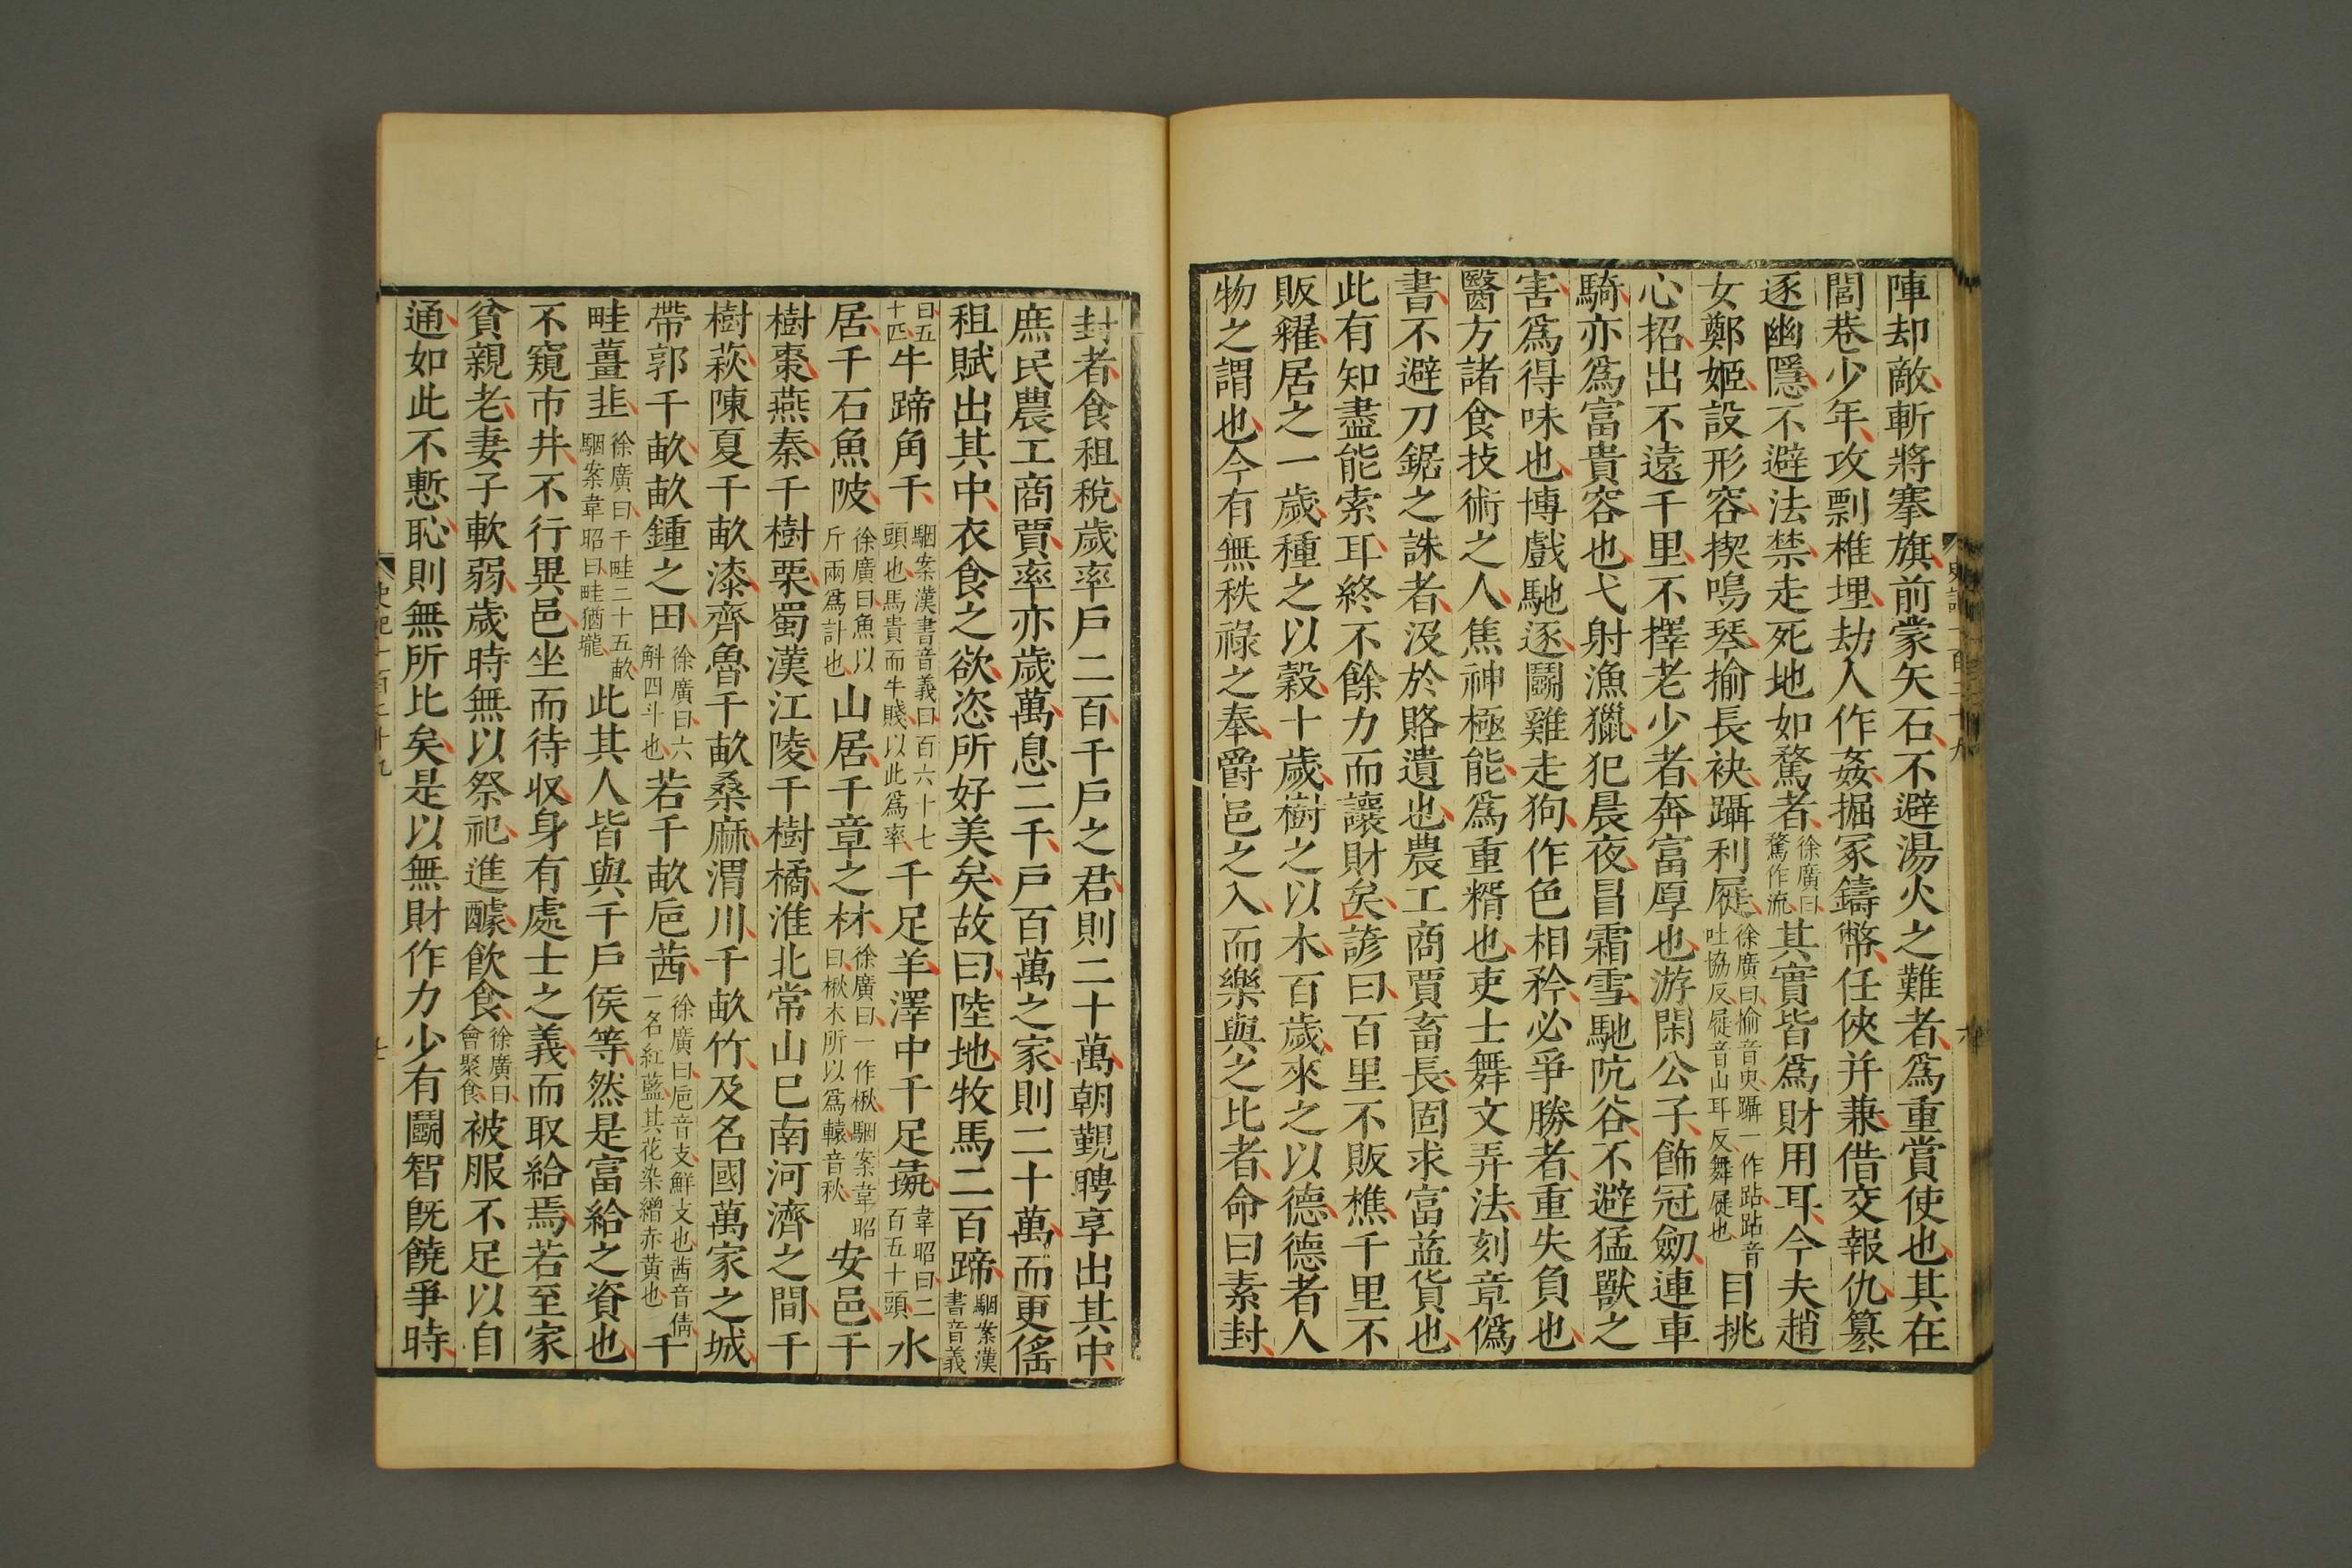 陣却敵斬將搴旗前蒙矢石不避湯火之難者爲重賞使也其在
閭巷少年攻剽椎埋劫人作姦掘冢鑄幣任俠并兼借交報仇篡
逐幽隱不避法禁走死地如騖者徐廣曰騖作流其實皆爲財用耳今夫趙
女鄭姬設形容揳鳴琴揄長袂躡利屣徐廣曰揄音臾躡一作跕跕音吐協反屣音山耳反舞屣也目挑
心招出不遠千里不擇老少者奔富厚也游閑公子飾冠劒連車
騎亦爲富貴容也弋射漁獵犯晨夜冒霜雪馳阬谷不避猛獸之
害爲得味也博戲馳逐鬬雞走狗作色相矜必爭勝者重失負也
醫方諸食技術之人焦神極能爲重糈也吏士舞文弄法刻章僞
書不避刀鋸之誅者沒於賂遺也農工商賈畜長固求富益貨也
此有知盡能索耳終不餘力而讓財矣諺曰百里不販樵千里不
販糴居之一歲種之以穀十歲樹之以木百歲來之以德德者人
物之謂也今有無秩祿之奉爵邑之入而樂與之比者命曰素封
封者食租稅歲率戶二百千戶之君則二十萬朝覲聘享出其中
庶民農工商賈率亦歲萬息二千戶百萬之家則二十萬而更徭
租賦出其中衣食之欲恣所好美矣故曰陸地牧馬二百蹄駰案漢書音義
曰五十匹牛蹄角千駰案漢書音義曰百六十七頭也馬貴而牛賤以此爲率千足羊澤中千足彘韋昭曰二百五十頭水
居千石魚陂徐廣曰魚以斤兩爲計也山居千章之材徐廣曰一作楸駰案韋昭曰楸木所以爲轅音秋安邑千
樹棗燕秦千樹栗蜀漢江陵千樹橘淮北常山已南河濟之間千
樹萩陳夏千畝漆齊魯千畝桑麻渭川千畝竹及名國萬家之城
帶郭千畝畝鍾之田徐廣曰六斛四斗也若千畝巵茜徐廣曰巵音支鮮支也茜音倩一名紅藍其花染繒赤黃也千
畦薑韭徐廣曰千畦二十五畝駰案韋昭曰畦猶壠此其人皆與千戶侯等然是富給之資也
不窺市井不行異邑坐而待收身有處士之義而取給焉若至家
貧親老妻子軟弱歲時無以祭祀進醵飲食徐廣曰會聚食被服不足以自
通如此不慙恥則無所比矣是以無財作力少有鬬智旣饒爭時
史記一百二十九